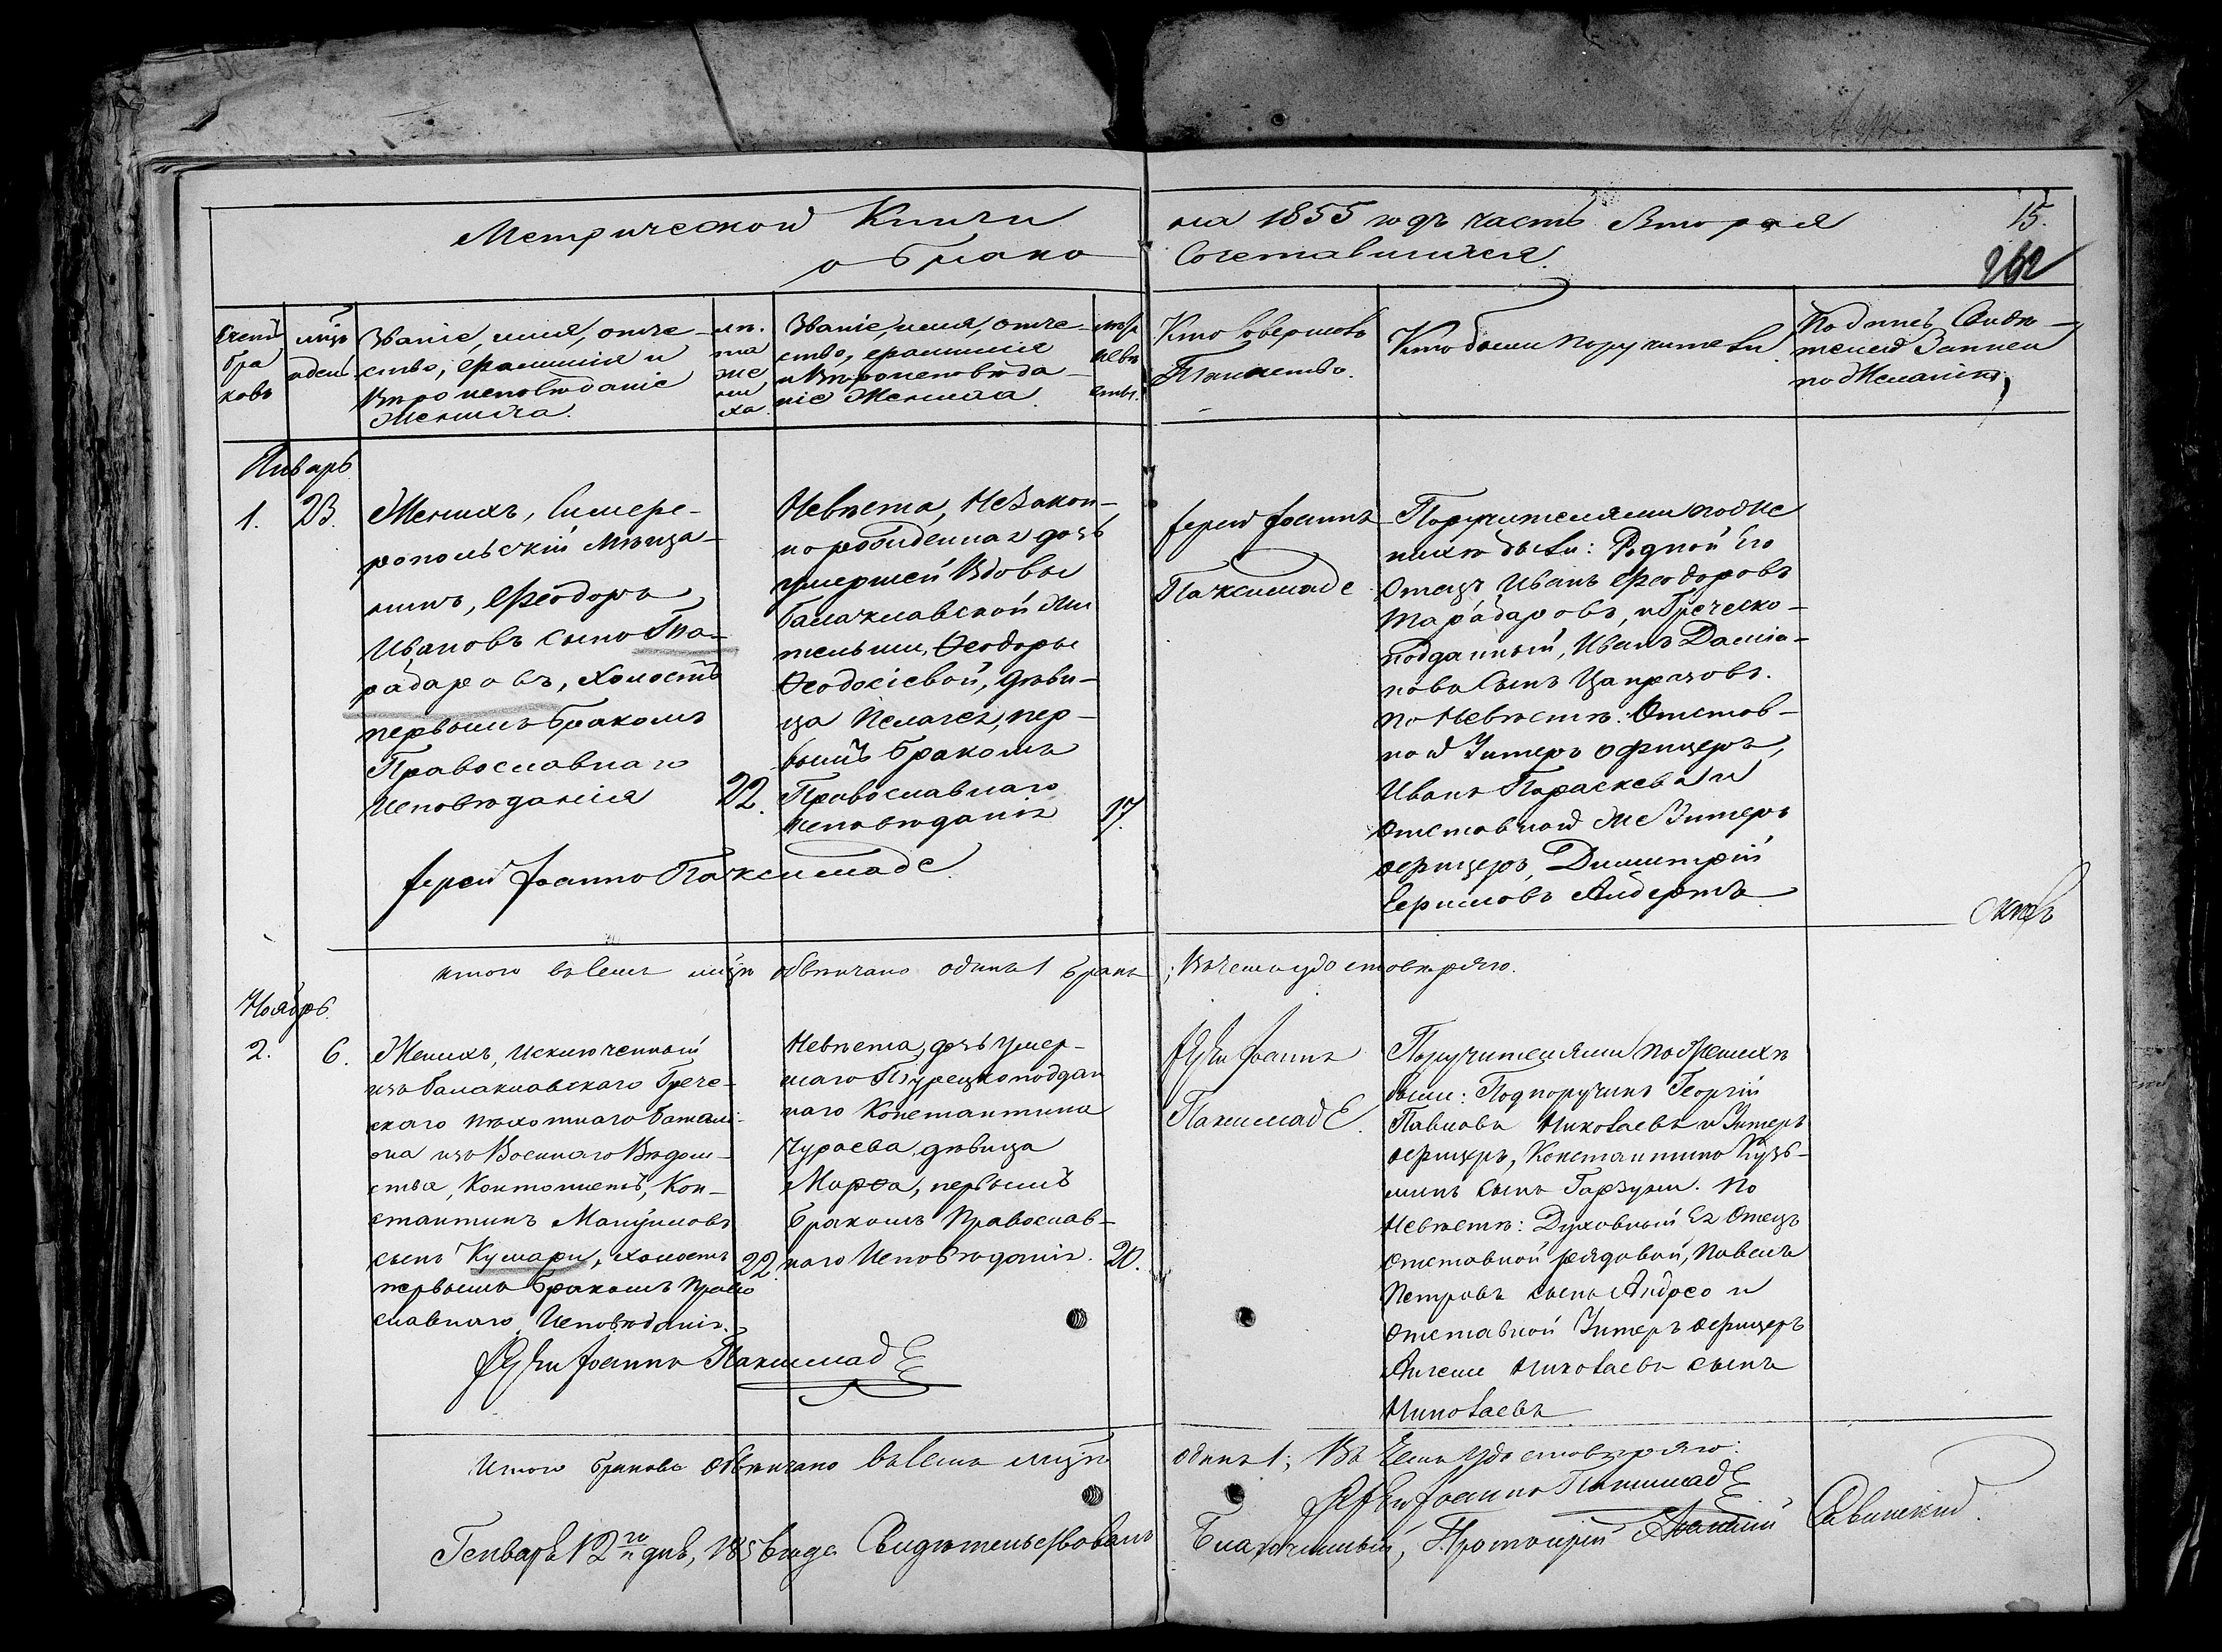 Метрической Книги
на 1855 годъ часть вторая
15.
о брако
сочетавшихся.
262
Счетъ
бра
ковъ
мѣцъ
и день
Званіе, имя, отче-
ство, фамилія и
Вѣроисповѣданіе
Жениха.
лѣ.
та
же
ни
ха.
Званіе, имя, отче-
ство, фамилія
и Вѣроисповѣда-
ніе
лѣта
невѣ
сты.
Кто совершалъ
Таинство.
Кто были поручители
Подпись Свидѣ-
телей Записи
по Желанію
Январь
1.
23.
Женихъ, Симферо-
попольскій мѣща-
нинъ, Феодоръ
Ивановъ сынъ Та-
радаровъ, холостъ
первымъ бракомъ
Православнаго
Исповѣданія
22.
Невѣста, Незакон-
норожденная дочь
умершей Вдовы
балаклавской жи
тельши, Ѳеодоры
Ѳеодосіевой, дѣви-
ца Пелагея, пер-
вымъ бракомъ
Православнаго
исповѣданія
17.
Іерей Іоаннъ
Паксимаде
Поручителями по Же
нихѣ были: Родной Его
Отецъ Иванъ Феодоровъ
Тарадаровъ, и Греческо-
подданный, Иванъ Даміа-
новъ Сынъ
по Невѣстѣ: Отстав-
ной Унтеръ офицеръ,
Иванъ Параскева и
отставной же Унтеръ
офицеръ, Димитрій
Ефимовъ
Іерей Іоаннъ Паксимаде
итого въ семъ мѣцѣ обвѣнчано одинъ 1 бракъ
; въ чемъ удостовѣряю.
Ноябрь.
2.
6.
Женихъ, исключенный
изъ балаклавскаго Грече-
скаго пѣхотнаго баталі-
она изъ Военнаго Вѣдом-
ства, Кантонистъ, Кон-
стантинъ Мануиловъ
сынъ Кумари, холостъ
первымъ бракомъ Право
славнаго Исповѣданія.
22.
Невѣста, дочь умер-
шаго Турецкоподдан
наго Константина
Чураева, дѣвица
Марѳа, первымъ
бракомъ Православ-
наго Исповѣданія.
20.
Іерей Іоаннъ
Паксимадε.
Поручителями по Женихѣ
были: Подпоручикъ Георгій
Павловъ Николаевъ и Унтеръ
офицеръ, Константинъ Кузь-
минъ сынъ По
Невѣстѣ: Духовный Ея Отецъ
отставной рядовой, Павелъ
Петровъ сынъ Андрео и
отставной Унтеръ офицеръ
Николаевъ сынъ
Николаевъ
Іерей Іоаннъ Паксимадε
Итого браковъ обвѣнчано въ семъ мѣцѣ
одинъ 1; Въ чемъ удостовѣряю:
Іерей Іоаннъ Паксимадε
Генварь 12го дня, 1856 года Свидѣтельствовалъ
Благочинный, Протоіерей